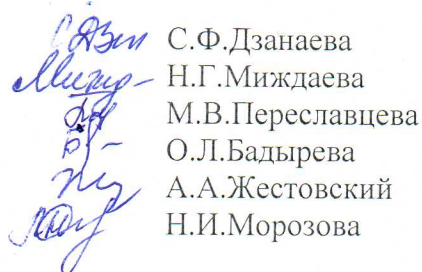 С.Ф.Дзанаева
Н.Г.Миждаева
М.В.Переславцева
О.Л.Бадырева
А.А.Жестовский
Н.И.Морозова